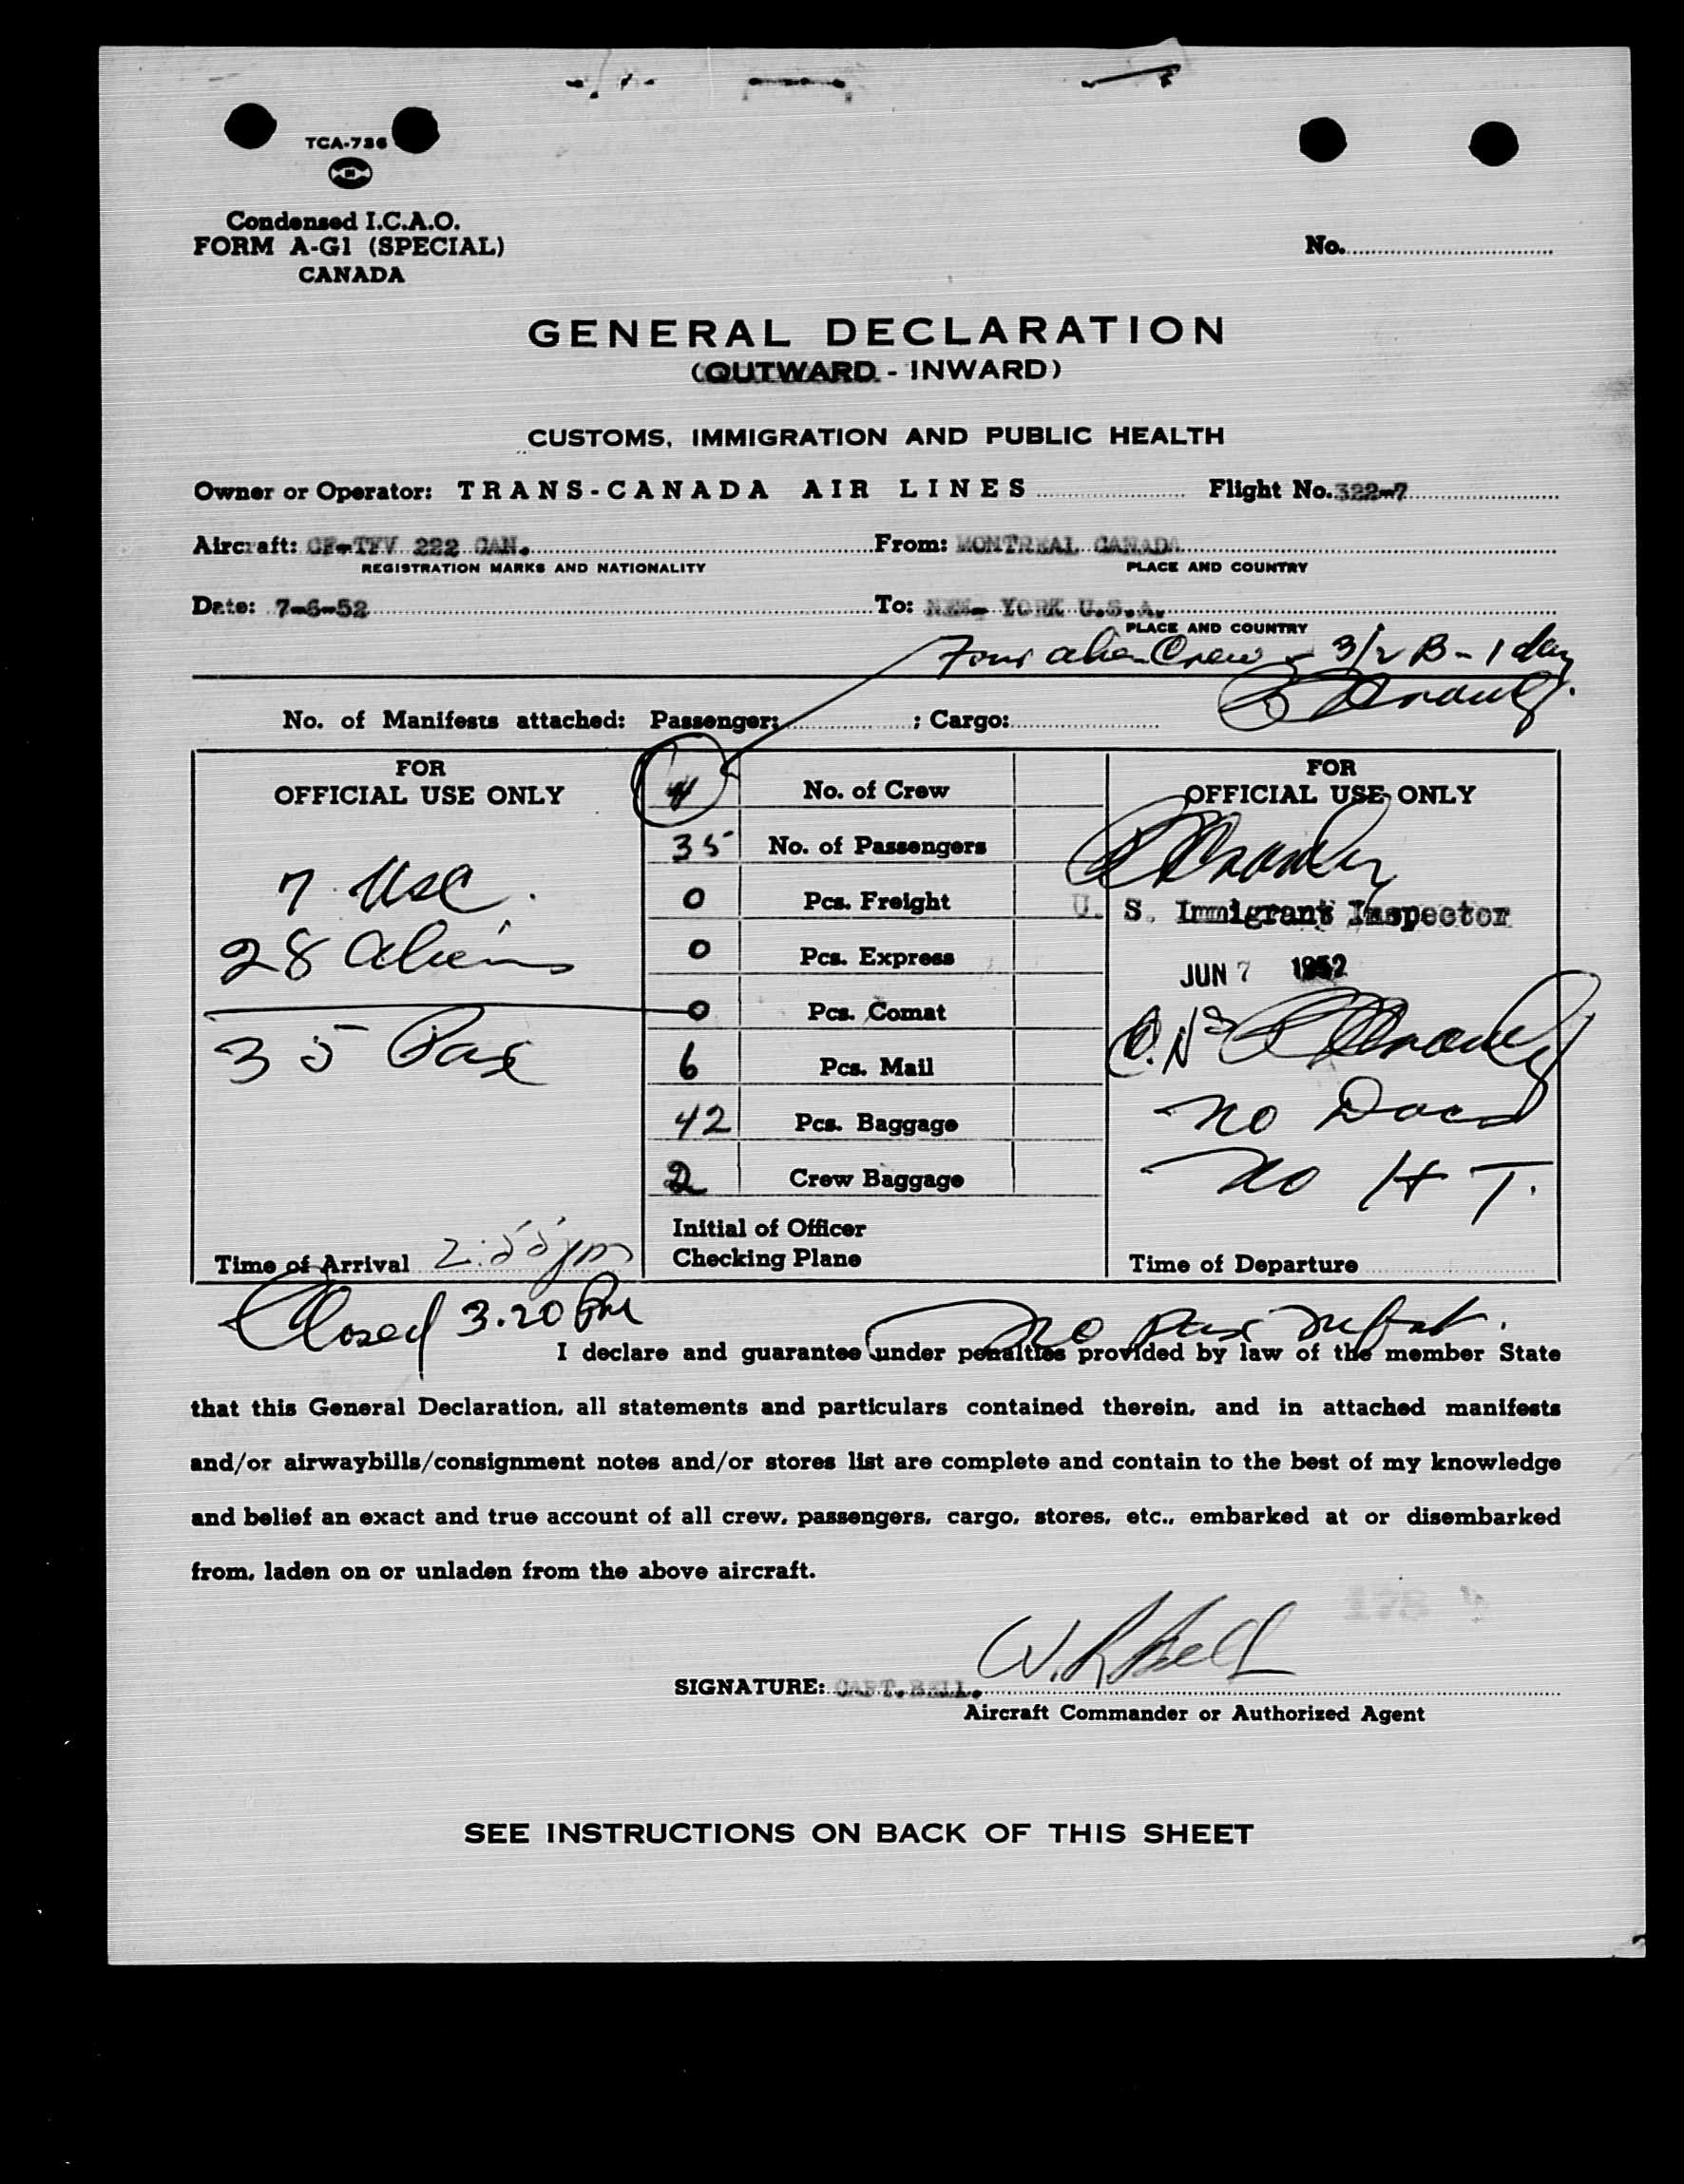 TCA-736
Condensed I.C.A.O.
FORM A-G1 (SPECIAL)
CANADA
No.
GENERAL DECLARATION
(OUTWARD - INWARD)
CUSTOMS, IMMIGRATION AND PUBLIC HEALTH
Owner or Operator: TRANS-CANADA AIR LINES Flight No. 322-7
Aircraft: CF-TFV 222 CAN. From: MONTREAL CANADA
REGISTRATION MARKS AND NATIONALITY PLACE AND COUNTRY
Date: 7-6-52 To: NEW- YORK U.S.A.
PLACE AND COUNTRY
Four alien Crew - 3/2 B - 1 day
No. of Manifests attached: Passenger: ; Cargo:
FOR
OFFICIAL USE ONLY
7 USC.
28 aliens
35 Pax
Time of Arrival 2:55 pm
4 No. of Crew
35 No. of Passengers
0 Pcs. Freight
0 Pcs. Express
0 Pcs. Comat
6 Pcs. Mail
42 Pcs. Baggage
2 Crew Baggage
Initial of Officer
Checking Plane
FOR
OFFICIAL USE ONLY
U. S. Immigrant Inspector
JUN 7 1952
no
no H T.
Time of Departure
Closed 3.20 PM
no pax
I declare and guarantee under penalties provided by law of the member State
that this General Declaration, all statements and particulars contained therein, and in attached manifests
and/or airwaybills/consignment notes and/or stores list are complete and contain to the best of my knowledge
and belief an exact and true account of all crew, passengers, cargo, stores, etc., embarked at or disembarked
from, laden on or unladen from the above aircraft.
178
W. R. Bell
SIGNATURE: CAPT. BELL.
Aircraft Commander or Authorized Agent
SEE INSTRUCTIONS ON BACK OF THIS SHEET